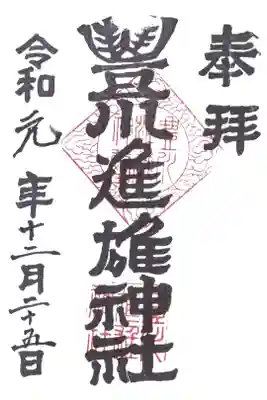 奉拝
豐川進雄神社
令和元年十二月二十五日